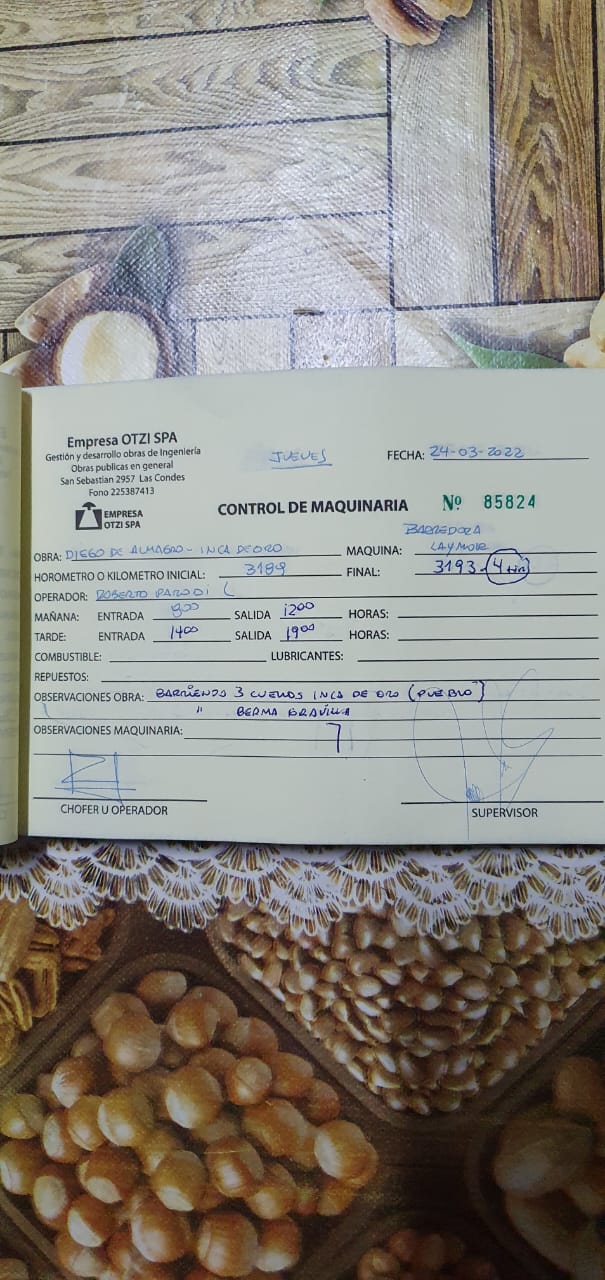 Empresa OTZI SPA
Gestión y desarrollo obras de Ingeniería
Obras publicas en general
San Sebastian 2957 Las Condes
Fono 225387413
EMPRESA
OTZI SPA
JUEVES
FECHA: 24-03-2022
CONTROL DE MAQUINARIA Nº 85824
OBRA: DIEGO DE ALMAGRO - INCA DE ORO MAQUINA: BARREDORA
LAYMOR
HOROMETRO O KILOMETRO INICIAL: 3189 FINAL: 3193 4
OPERADOR: ROBERTO PARODI
MAÑANA: ENTRADA 800 SALIDA 1200 HORAS:
TARDE: ENTRADA 1400 SALIDA 1900 HORAS:
COMBUSTIBLE: LUBRICANTES:
REPUESTOS:
OBSERVACIONES OBRA: BARRIENDO 3 INCA DE ORO (PUEBLO)
" BERMA GRAVILLA
OBSERVACIONES MAQUINARIA:
CHOFER U OPERADOR SUPERVISOR